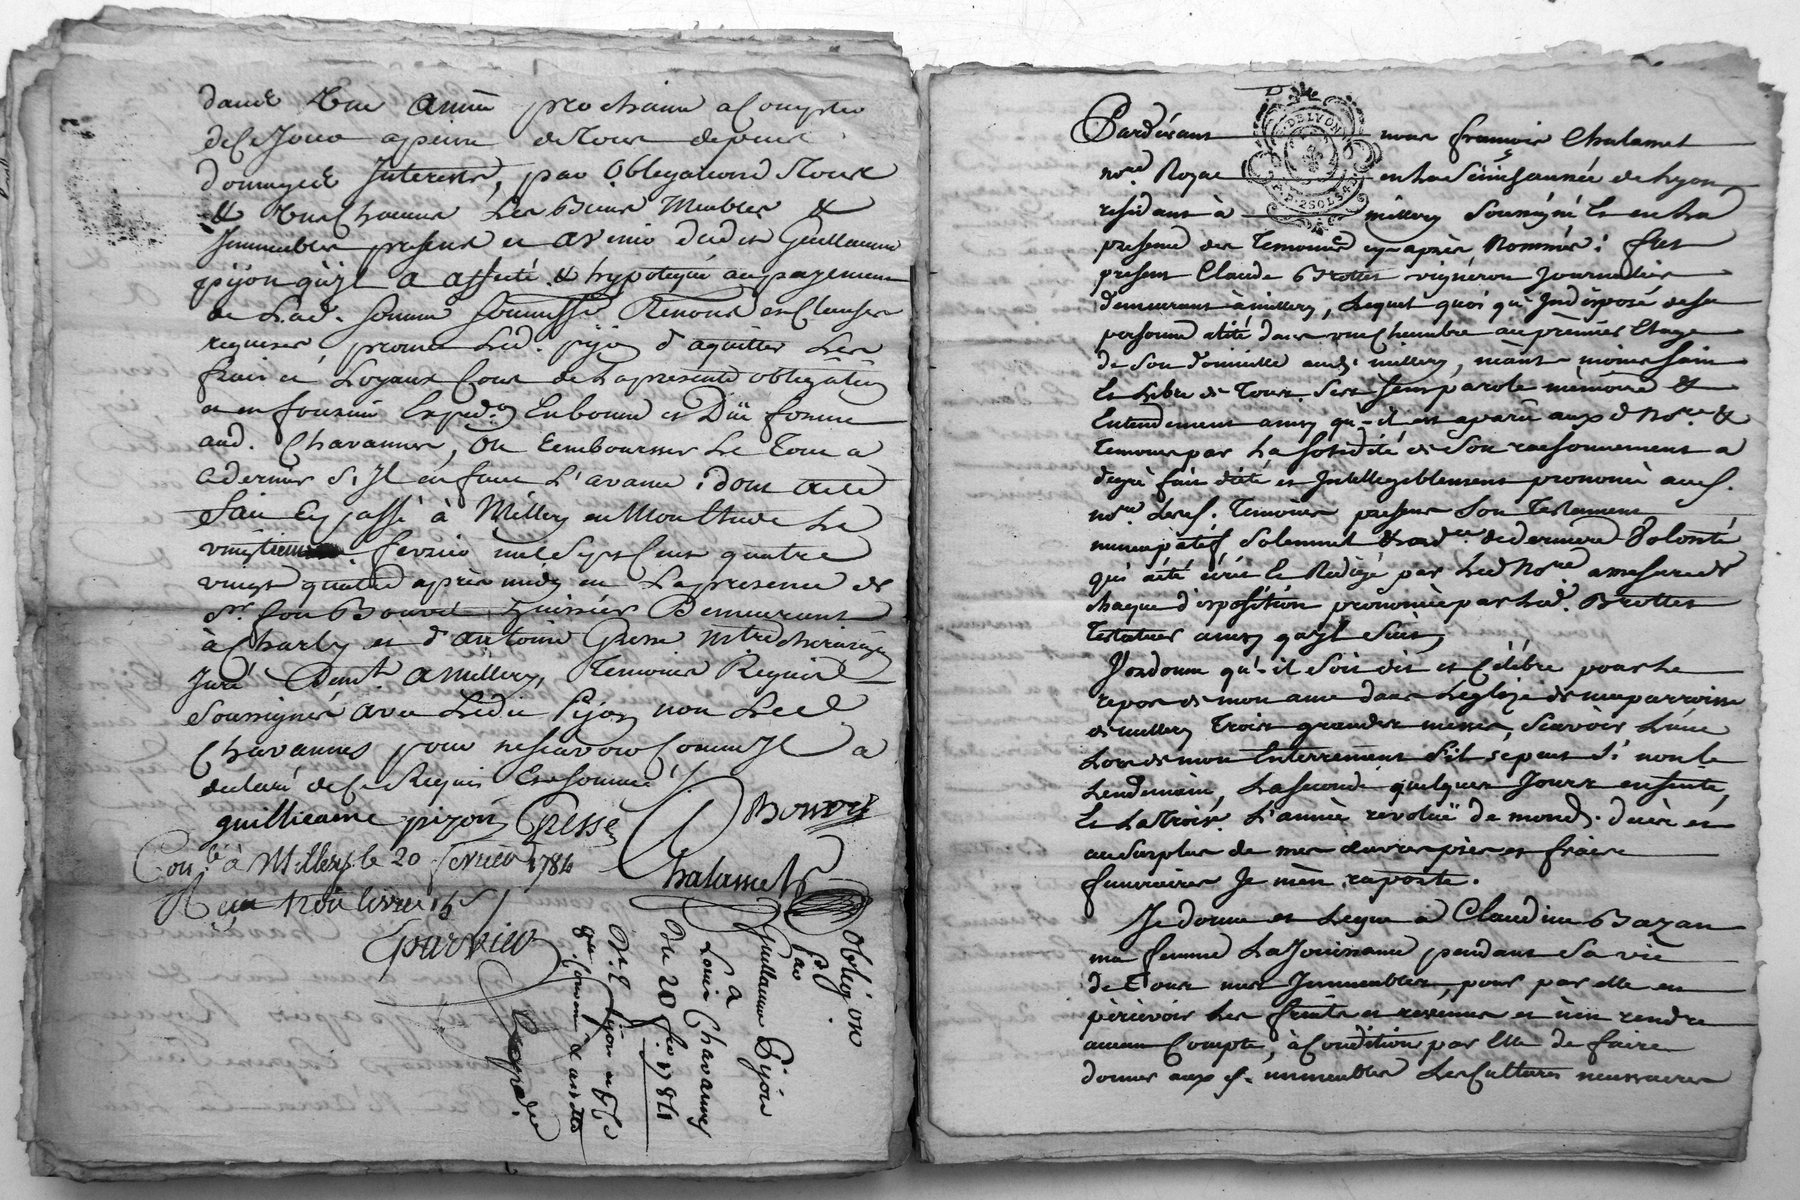 dans Une année prochaine a Compter
de Ce Jour a peine de Tous depens
domages Interests, par Obligations Tours
& Un Chacuns Ses Biens Meubles &
Immeubles presens et avenir dudit Guillaume
pijon qu'yl a affecté & hypotequé au payement
de Lad. Somme Soumissé Renoncé et Clauses
requises, promet Led. pijon d'aquitter Les
frais et Loyaux Cous de La presente obligation
et en fournir Exped.on En bonne et Düe forme
aud. Chavannes, Ou Rembourser Le Tout a
Ce dernier S'Il en fait L'avance; dont acte
Fait Et passé à Millery en Lhuis Etude Le
vingtieme fevrier mil Sept Cens quatre
vingt quatre après midy en La presence de
Sr. Bouvet huissier Demeurant
à Charly et d'antoine Gresse Mtre chirurgien
Juré Demt. a Millery, Temoins Requis
Soussignés avec Ledit Pijon non Led.
Chavannes pour ne Scavoir Comme Il a
declaré de Ce Requis Et Sommé
guillieaume pijon Gresse Bouvet
Con.lé à Millery le 20 fevrier 1784
R livres
Chalamet
Oblig.on
par
Guillaume Pijon
a
Louis Chavannes
Du 20 fer. 1784
Pardevant nous françois Chalamet
nore. Royal en La Sénéchaussée de Lyon
residant à millery Soussigné Et en La
presence des Temoins cy après Nommés: fut
present Claude Brottet vigneron Journalier
demeurant à millery, Lequel quoi qu'Indisposé de sa
personne alité dans une Chambre au premier Etage
de Son domicille aud. millery, néant-moins Sain
Et Libre de Tous Ses Sens parole mémoire &
Entendement ainsy qu'-il est aparü auxd. Nore. &
Temoins par La Solidité de Son raisonnement a
de gré fait dicté et Intellegiblement prononcé auxd.
nore. & d. Temoins presens Son Testament
nuncupatif, Solemnel & ord.re de derniere Volonté
qui a été écrit & Redigé par Led Nore. a mesure de
chaque disposition prononcée par Led. Brottet
Testateur ainsy qu'yl Suit,
J'ordonne qu'-il Soit dit et Célébré pour Le
repos de mon ame dans L'eglize de ma parroisse
de millery Trois grandes messes, Scavoir L'une
Lors de mon Enterrement S'il se peut Si non le
Lendemain, La Seconde quelques Jours ensuite,
Et La Trois.e L'année revolüe de mond. décès et
au Surplus de mes œuvres pies et frais
funeraires Je m'en raporte.
Je donne et Legue à Claudine Bazan
ma femme La Jouissance pendant Sa vie
de Tous mes Immeubles, pour par elle en
pércevoir Les fruits et revenus et n'en rendre
aucun Compte, à Condition par Elle de faire
donner auxd. immeubles Les Cultures necessaires